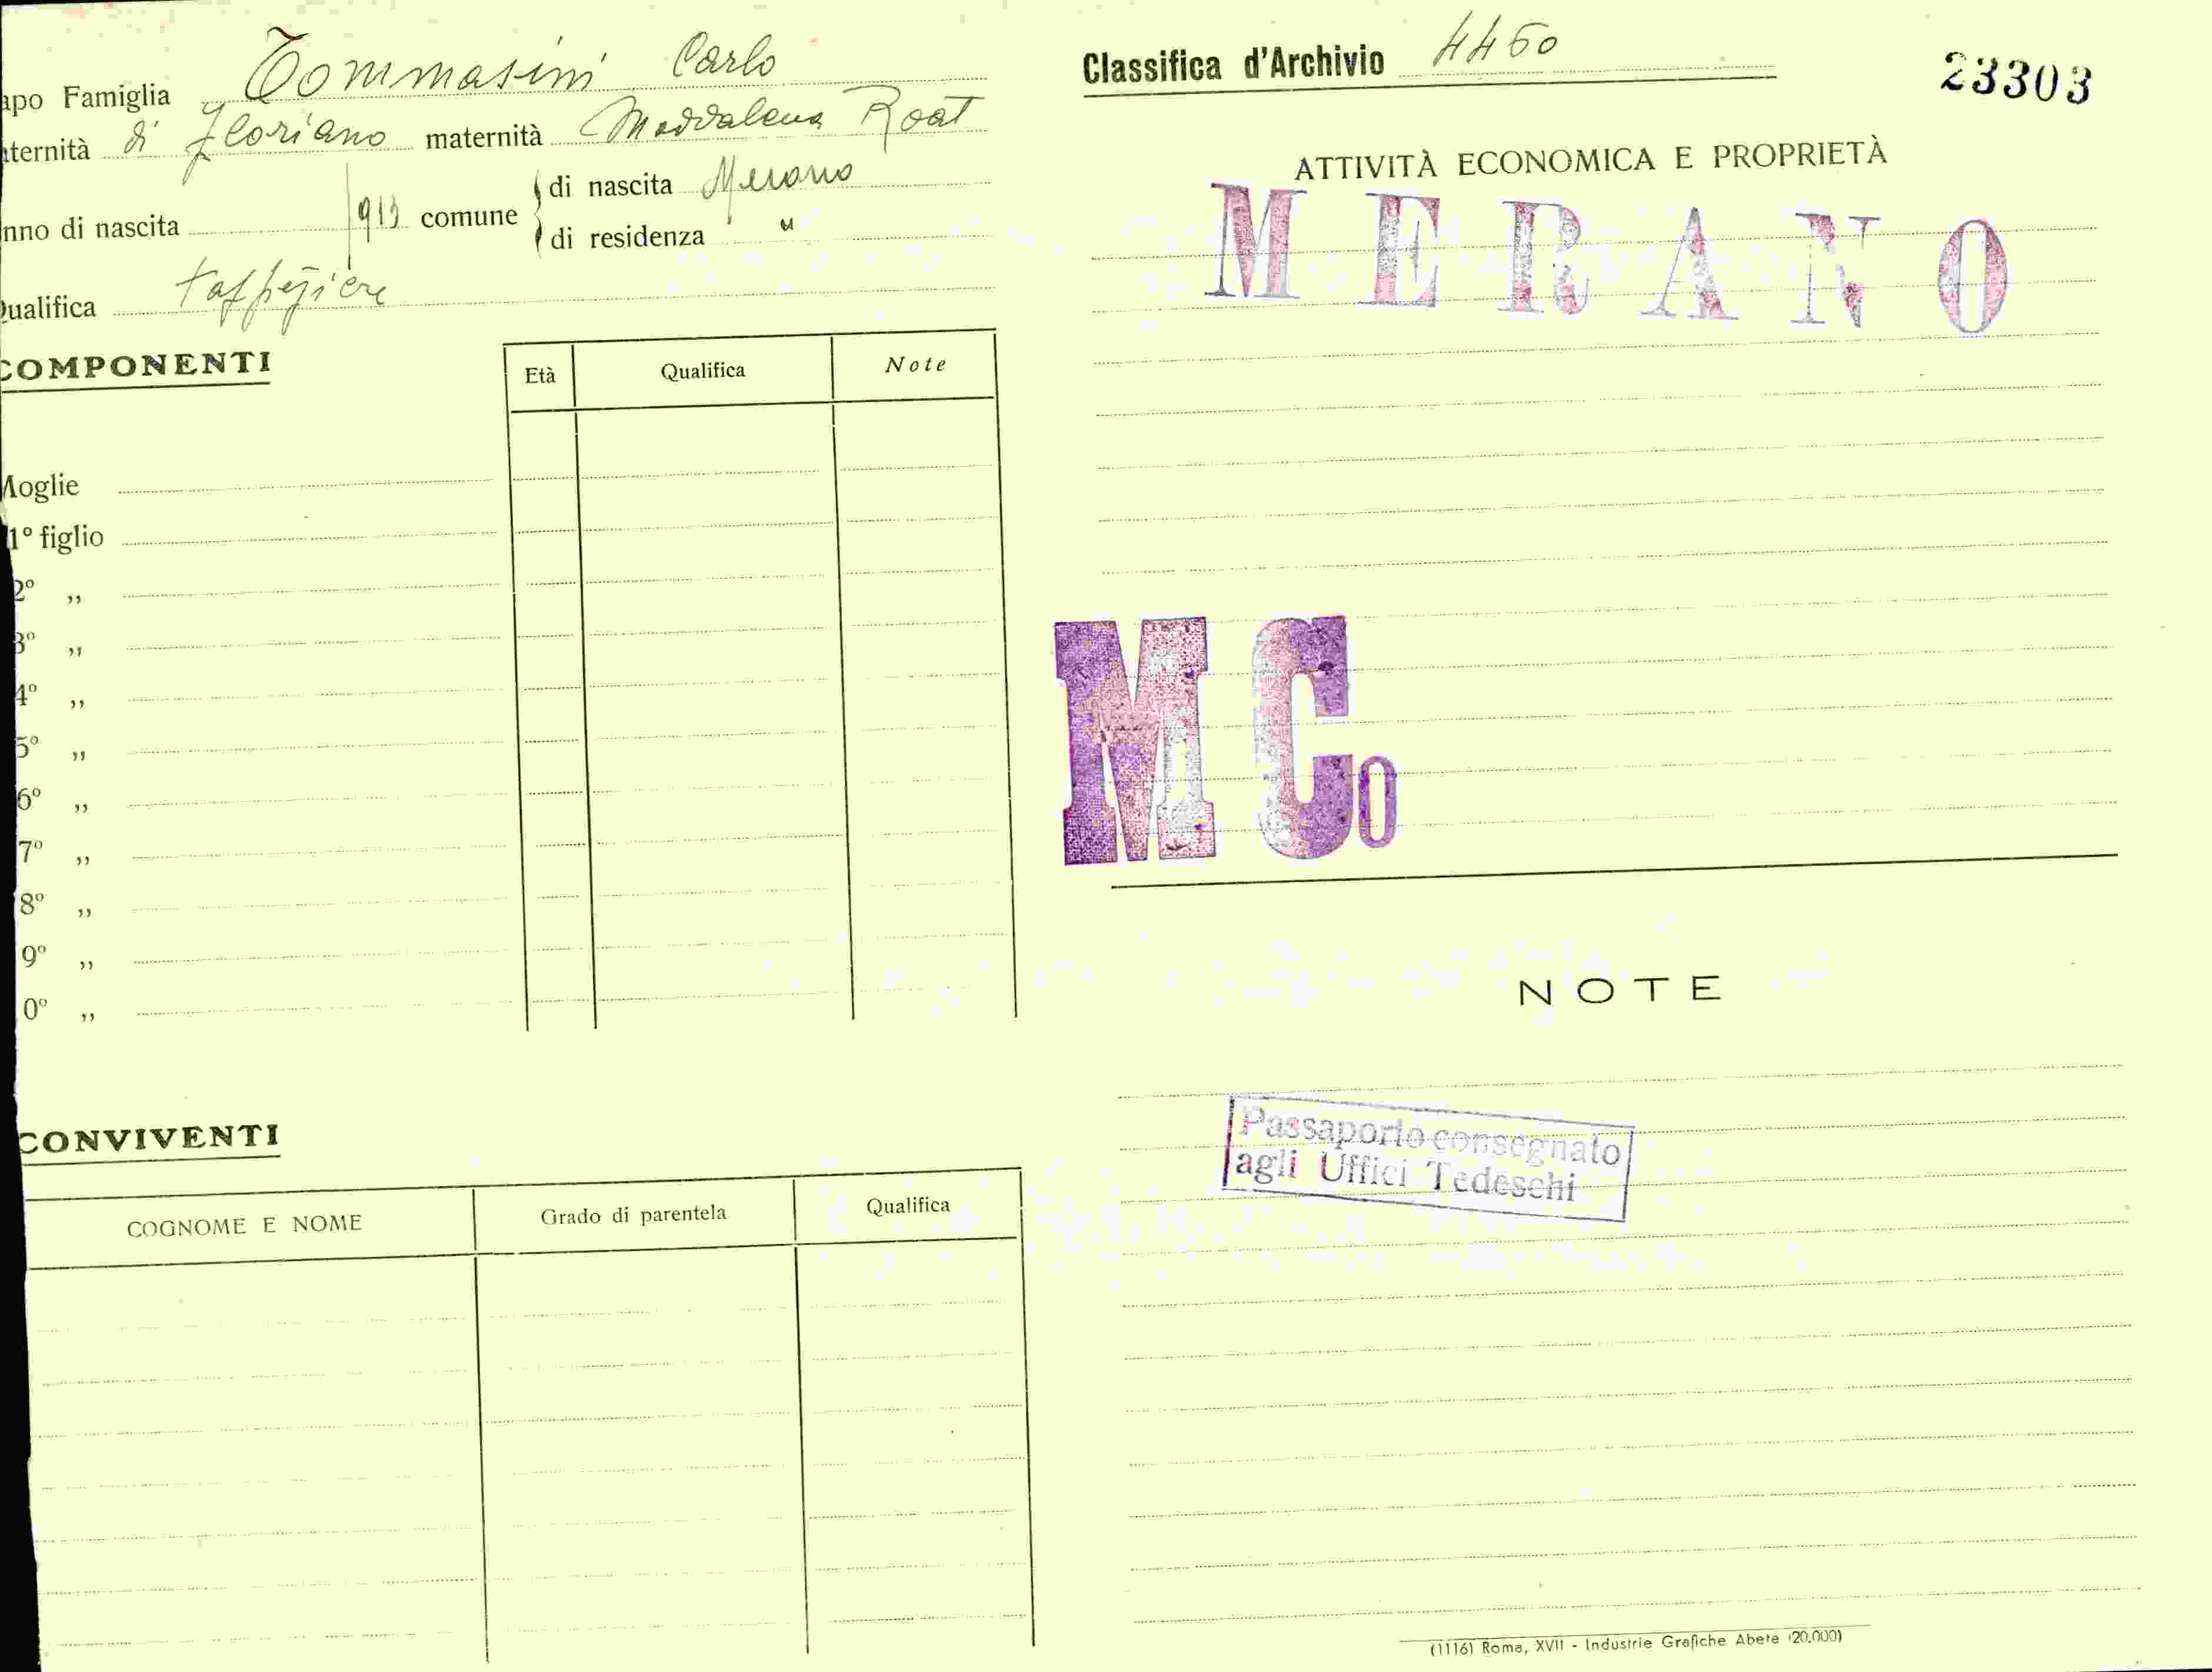 apo Famiglia Tommasini Carlo
aternità di Floriano maternità Maddalena Roat
nno di nascita 1913 comune di nascita Merano
di residenza "
Qualifica tappeziere
COMPONENTI
Età Qualifica Note
Moglie
1º figlio
2º „
3º „
4º „
5º „
6º „
7º „
8º „
9º „
0º „
CONVIVENTI
COGNOME E NOME Grado di parentela Qualifica
Classifica d'Archivio 4460
23303
ATTIVITÀ ECONOMICA E PROPRIETÀ
MERANO
M Co
NOTE
Passaporto consegnato
agli Uffici Tedeschi
(1116) Roma, XVII - Industrie Grafiche Abete (20.000)